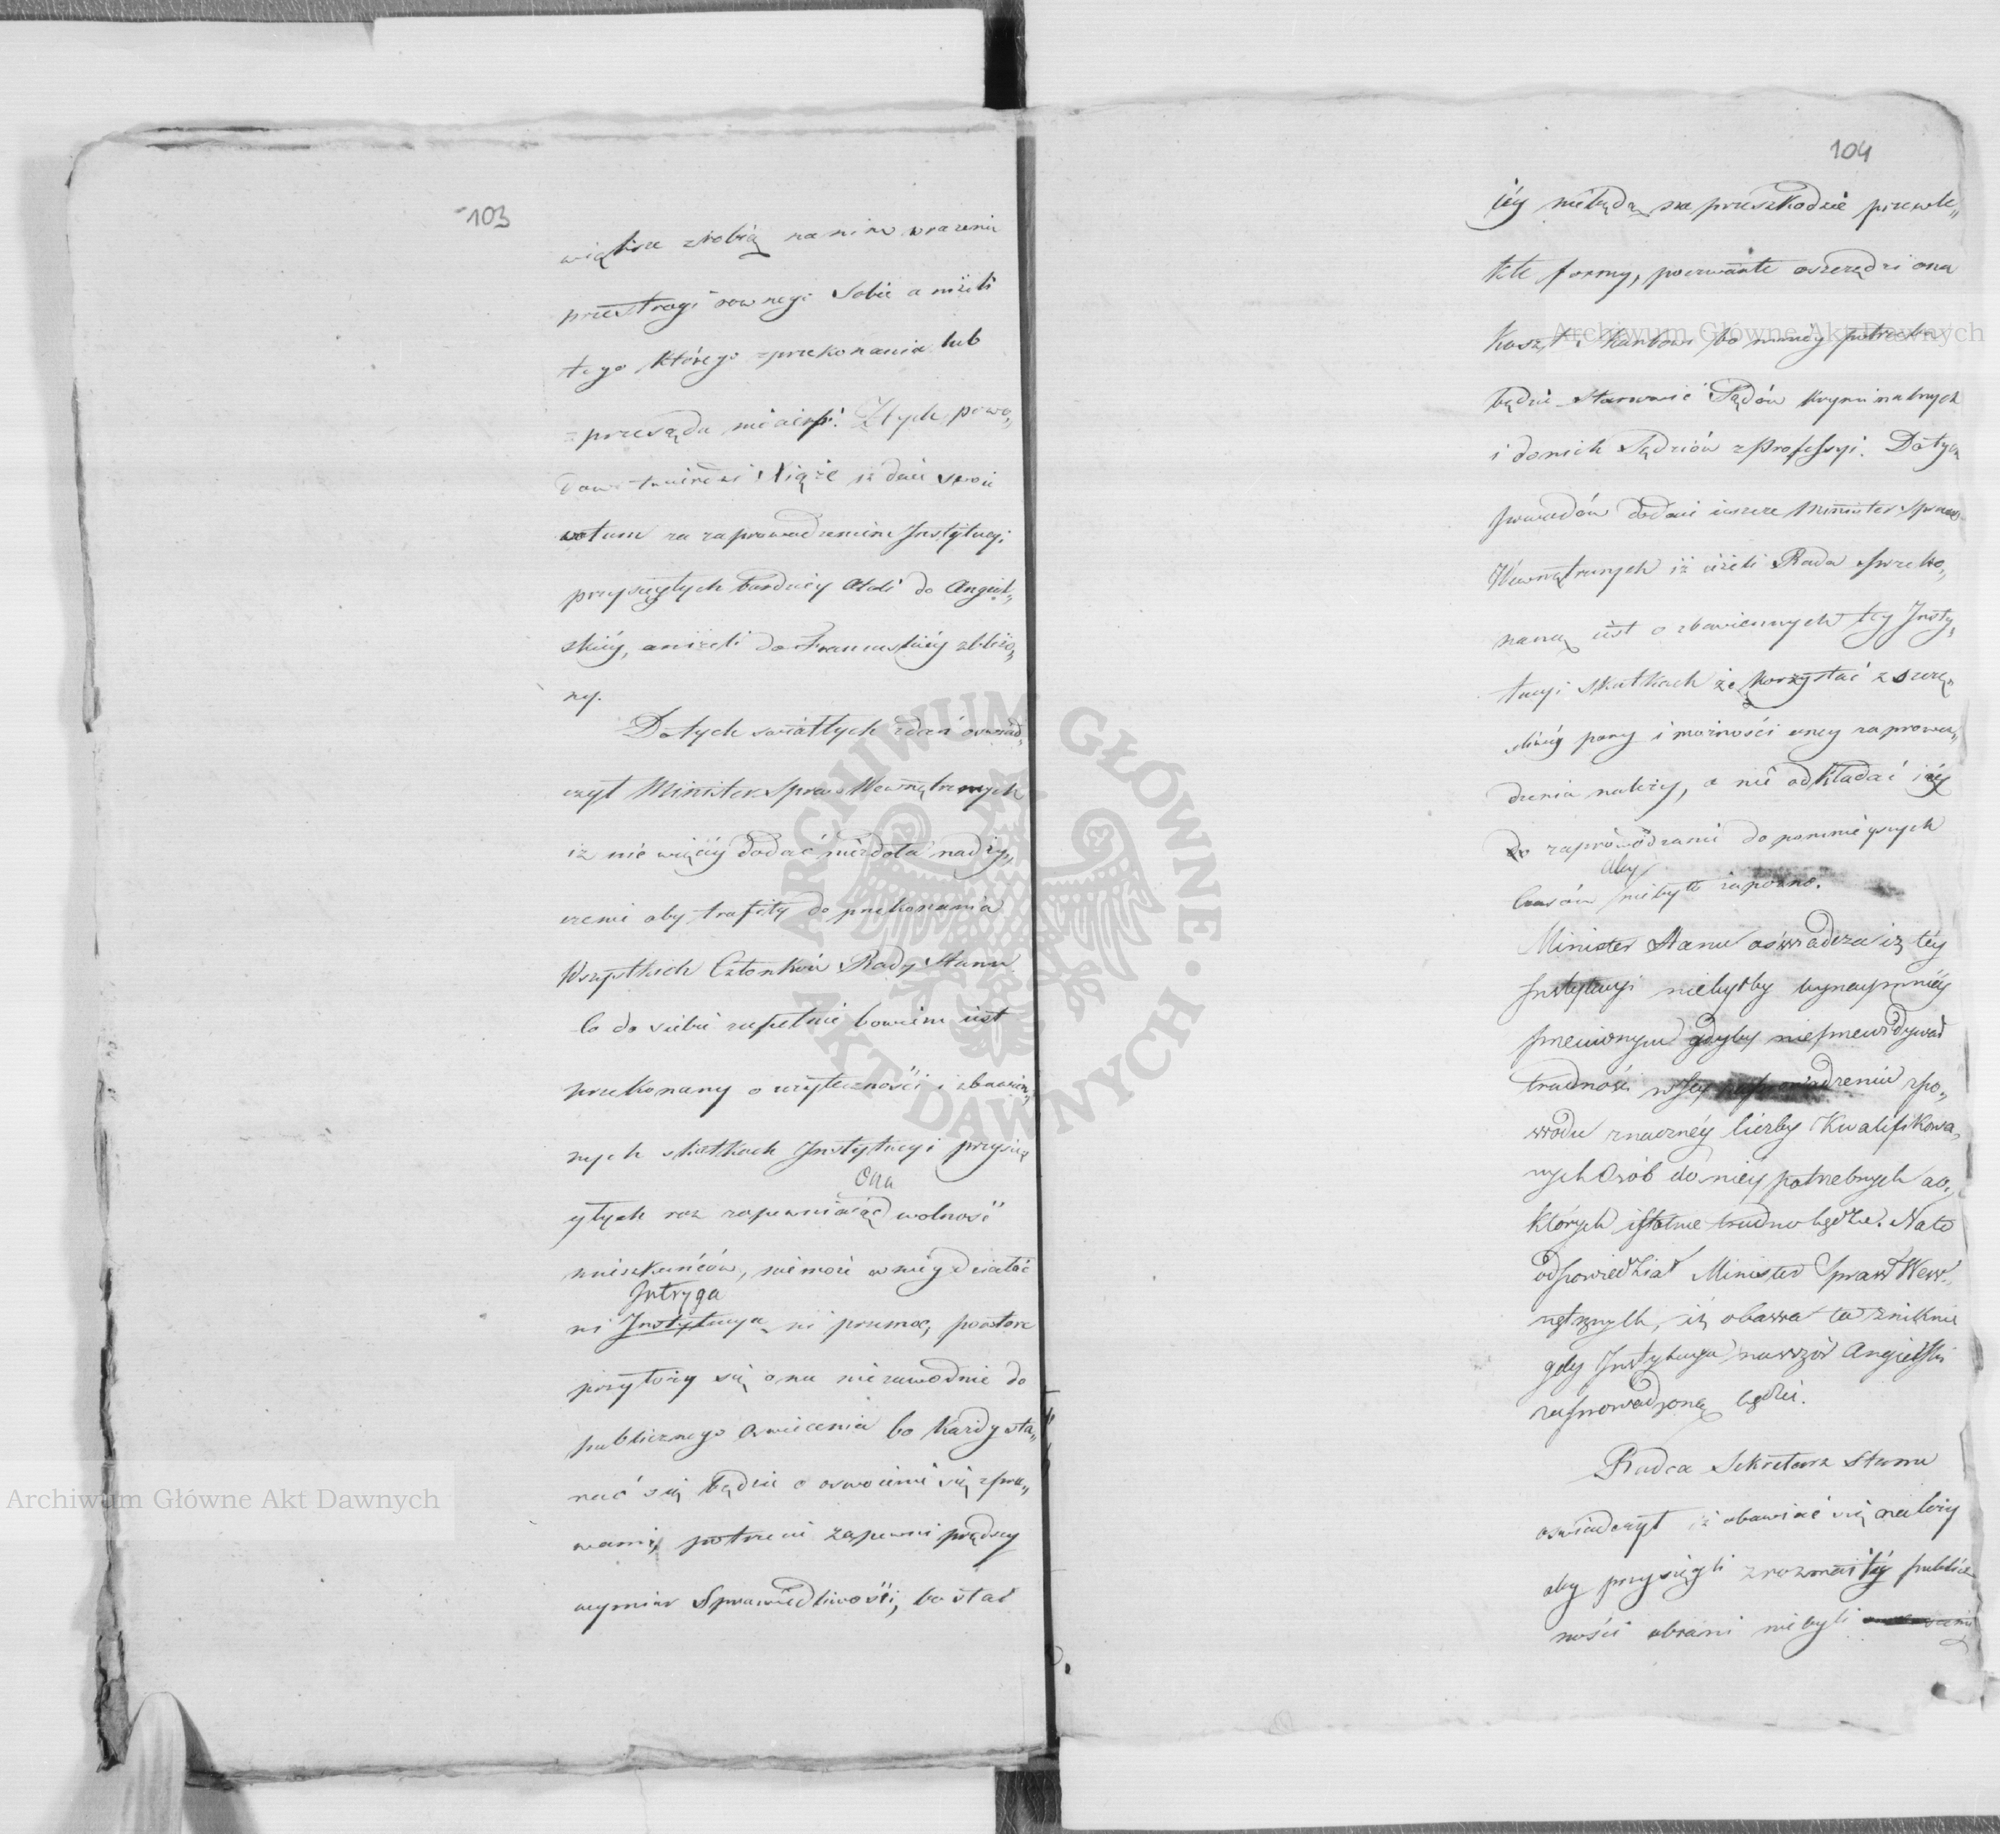 103
większe zrobią na nim wrażenie
przestrogi równego Sobie aniżeli
tego którego zprzekonania lub
zprzesądu Z tych powo„
dow Xiąże iż daie swoie
wotum za zaprowadzeniem Instytucyi
przysięgłych bardziey atoli do Angiel„
skiéy, aniżeli do Francuskiéy zbliżo„
ney.
Do tych światłych zdań oświad„
czył Minister Spraw Wewnętrznych
iż nie więcéy dodać niezdoła nad ży„
czenie aby trafiły do przekonania
Wszystkich Członków Rady Stanu
Co do siebie zupełnie bowiem iest
przekonany o użyteczności i zbawien„
nych skutkach Instytucyi przysię
głych raz zapewniaiąc Ona wolność
mieszkańców, niemoże w niéy działać
ni Instytucya Intryga ni przemoc, powtóre
przyłoży się ona niezawodnie do
publicznego Oświecenia bo każdy sta„
rać się będzie o oswoienie się zpra„
wami, potrzecie zapewni prędszy
wymiar Sprawiedliwości, bo stać
104
iéy niebędą na przeszkodzie przewle„
kłe formy, poczwarte oszczędzi ona
koszt Skarbowi bo mniéy potrzeba
będzie Stanowić Sądów kryminalnych
i do nich Sędziów z Professyi. Do tych
powodów dodaie ieszcze Minister Spraw
Wewnętrznych iż ieżeli Rada przeko„
naną iest o zbawiennych téy Insty„
tucyi skutkach że korzystać z szczę„
śliwéy pory i możności onéy zaprowa„
dzenia należy, a nie odkładać iéy
do zaprowadzenia do pomnieyszych
Czasów aby niebyło zapóźno.
Minister Stanu oświadcza iż téy
Instytucyi niebyłby bynaymniéy
przeciwnym gdyby nieprzewidywał
trudności w iey zaprowadzeniu zpo„
wodu znacznéy liczby Kwalifikowa„
nych Osób do niéy potrzebnych a o„
których istotnie trudno będzie. Na to
odpowiedział Minister Spraw Wew„
nętrznych, iż obawa ta zniknie
gdy Instytucya na wzór Angielski
zaprowadzoną będzie.
Radca Sekretarz Stanu
oświadczył iż obawiać się należy
aby przysięgli z rozmaitéy publicz
ności obrani niebyli
Archiwum Główne Akt Dawnych
Archiwum Główne Akt Dawnych
ARCHIWUM GŁÓWNE AKT DAWNYCH